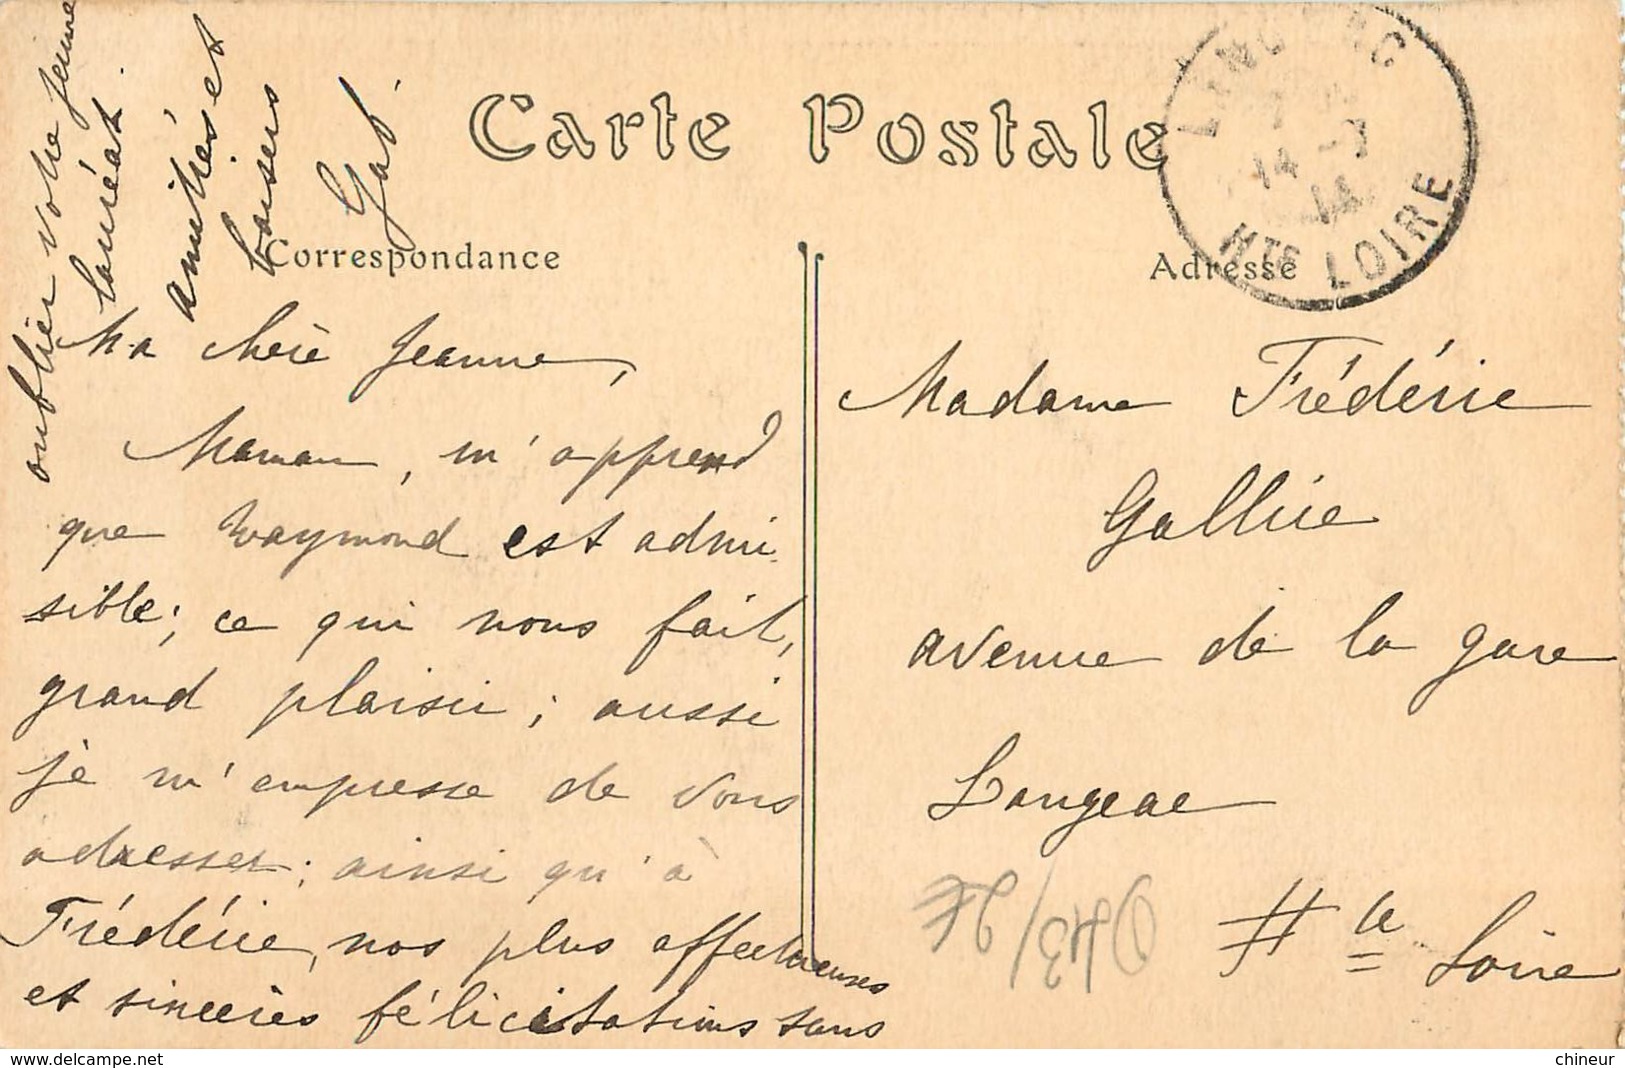 Carte Postale
Correspondance
Ma chère Jeanne,
Maman, m'apprend
que Raymond est admi-
sible; ce qui nous fait,
grand plaisir; aussi
je m'empresse de vous
adresser; ainsi qu'à
Frédéric, nos plus affectueuses
et sincères félicitations sans
oublier votre jeune
lauréat.
amitiés et
baisers
Gab
Adresse
Madame Frédéric
Gallice
avenue de la gare
Langeac
Hte Loire
LANGEAC
14 -7
14
HTE LOIRE
D43/2€
www.delcampe.net
chineur